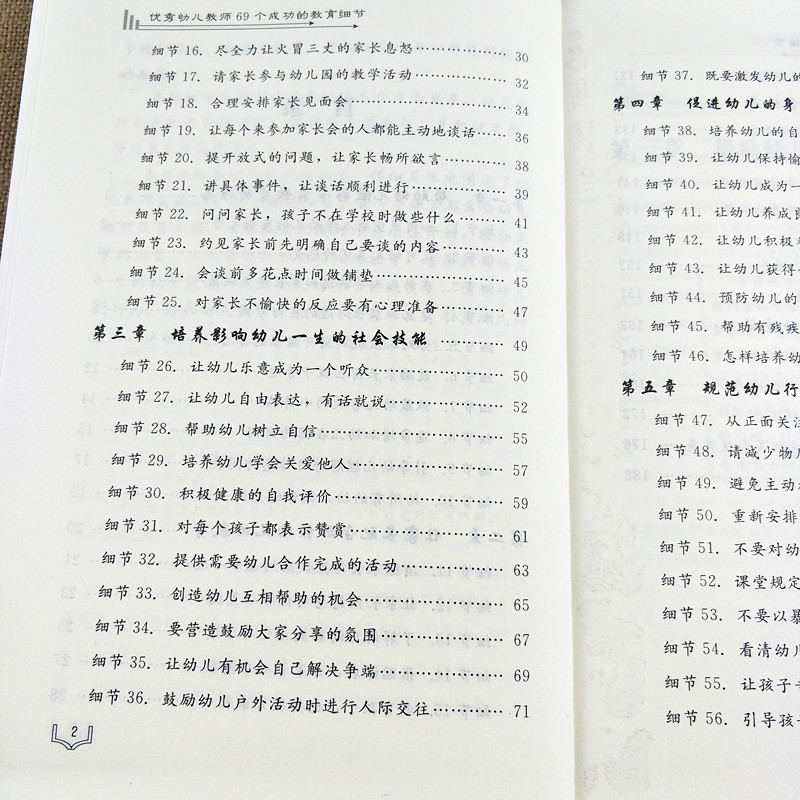 优秀幼儿教师69个成功的教育细节
细节16. 尽全力让火冒三丈的家长息怒 30
细节17. 请家长参与幼儿园的教学活动 32
细节18. 合理安排家长见面会 34
细节19. 让每个来参加家长会的人都能主动地谈话 36
细节20. 提开放式的问题，让家长畅所欲言 38
细节21. 讲具体事件，让谈话顺利进行 39
细节22. 问问家长，孩子不在学校时做些什么 41
细节23. 约见家长前先明确自己要谈的内容 43
细节24. 会谈前多花点时间做铺垫 45
细节25. 对家长不愉快的反应要有心理准备 47
第三章 培养影响幼儿一生的社会技能 49
细节26. 让幼儿乐意成为一个听众 50
细节27. 让幼儿自由表达，有话就说 52
细节28. 帮助幼儿树立自信 55
细节29. 培养幼儿学会关爱他人 57
细节30. 积极健康的自我评价 59
细节31. 对每个孩子都表示赞赏 61
细节32. 提供需要幼儿合作完成的活动 63
细节33. 创造幼儿互相帮助的机会 65
细节34. 要营造鼓励大家分享的氛围 67
细节35. 让幼儿有机会自己解决争端 69
细节36. 鼓励幼儿户外活动时进行人际交往 71
2
细节37. 既要激发幼儿的
第四章 促进幼儿的身
细节38. 培养幼儿的自
细节39. 让幼儿保持愉
细节40. 让幼儿成为一
细节41. 让幼儿养成良
细节42. 让幼儿积极
细节43. 让幼儿获得
细节44. 预防幼儿的
细节45. 帮助有残疾
细节46. 怎样培养幼
第五章 规范幼儿行
细节47. 从正面关注
细节48. 请减少物
细节49. 避免主动
细节50. 重新安排
细节51. 不要对幼
细节52. 课堂规定
细节53. 不要以暴
细节54. 看清幼儿
细节55. 让孩子
细节56. 引导孩